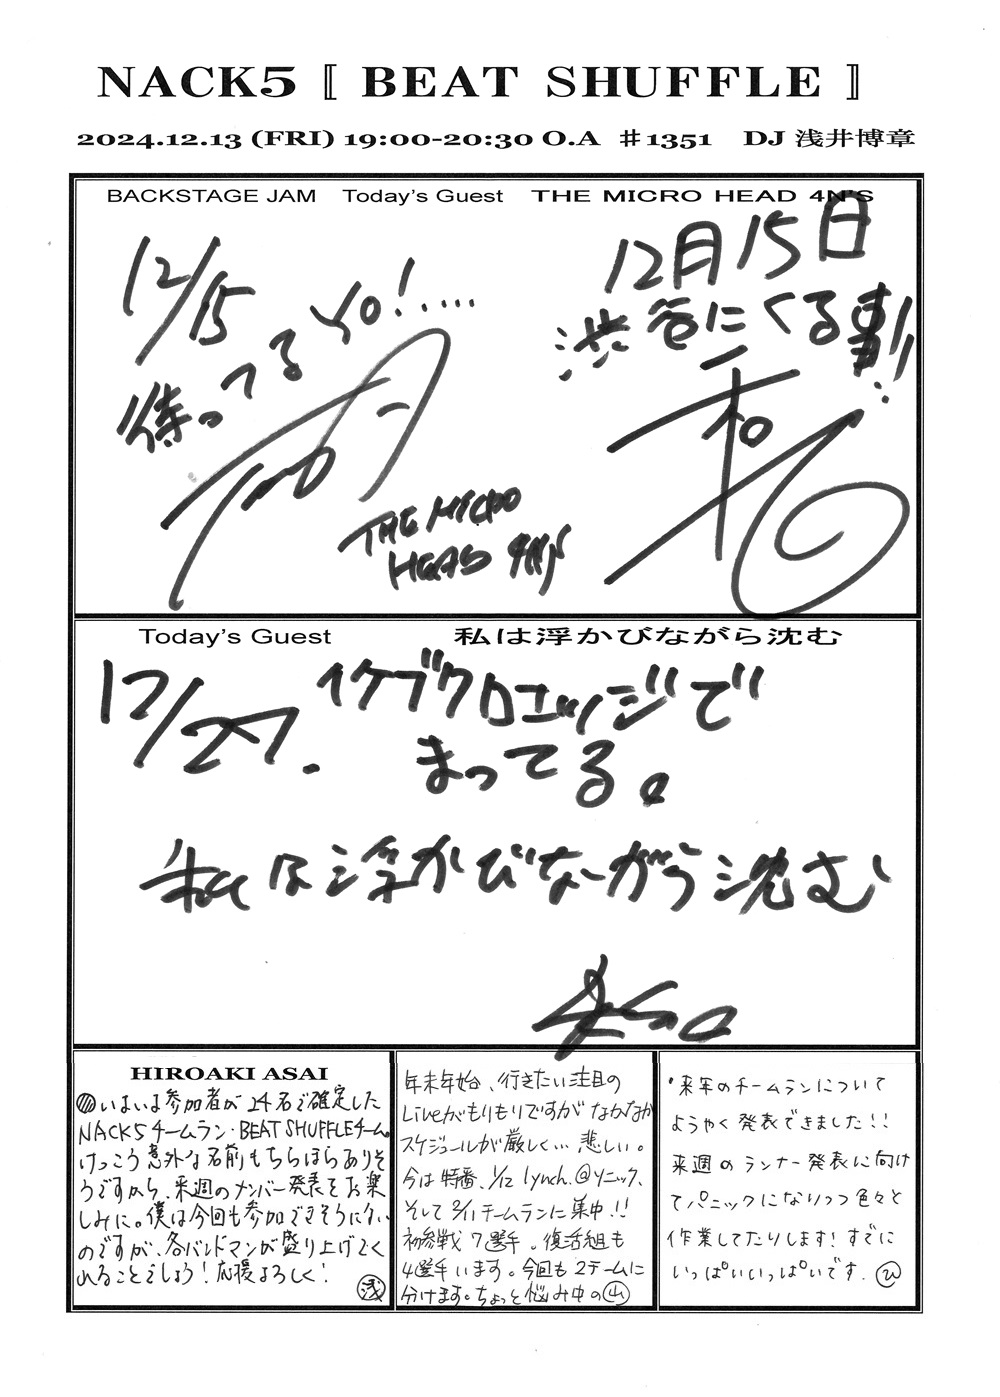 NACK5 〚 BEAT SHUFFLE 〛
2024.12.13 (FRI) 19:00-20:30 O.A ♯1351 DJ 浅井博章
BACKSTAGE JAM Today's Guest THE MICRO HEAD 4N'S
12/15
待ってるYO!....
THE MICRO
HEAD 4N'S
12月15日
渋谷にくる事!!
Today's Guest 私は浮かびながら沈む
12/27. イケブクロエッジで
まってる。
私は浮かびながら沈む
HIROAKI ASAI
いまいま参加者が24名で確定した
NACK5チームラン・BEAT SHUFFLEチーム。
けっこう意外な名前もちらほらありそ
うですから、来週のメンバー発表をお楽
しみに。僕は今回も参加できそうにない
のですが、各バンドマンが盛り上げてく
れることでしょう!応援よろしく!
浅
年末年始、行きたい注目の
Liveがもりもりですがなかなか
スケジュールが厳しく…悲しい。
今は特番、1/12 lynch.@ソニック、
そして2/11チームランに集中!!
初参戦7選手。復活組も
4選手います。今回も2チームに
分けます。ちょっと悩み中の山
・来年のチームランについて
ようやく発表できました!!
来週のランナー発表に向け
てパニックになりつつ色々と
作業してたりします!すでに
いっぱいいっぱいです。ひ